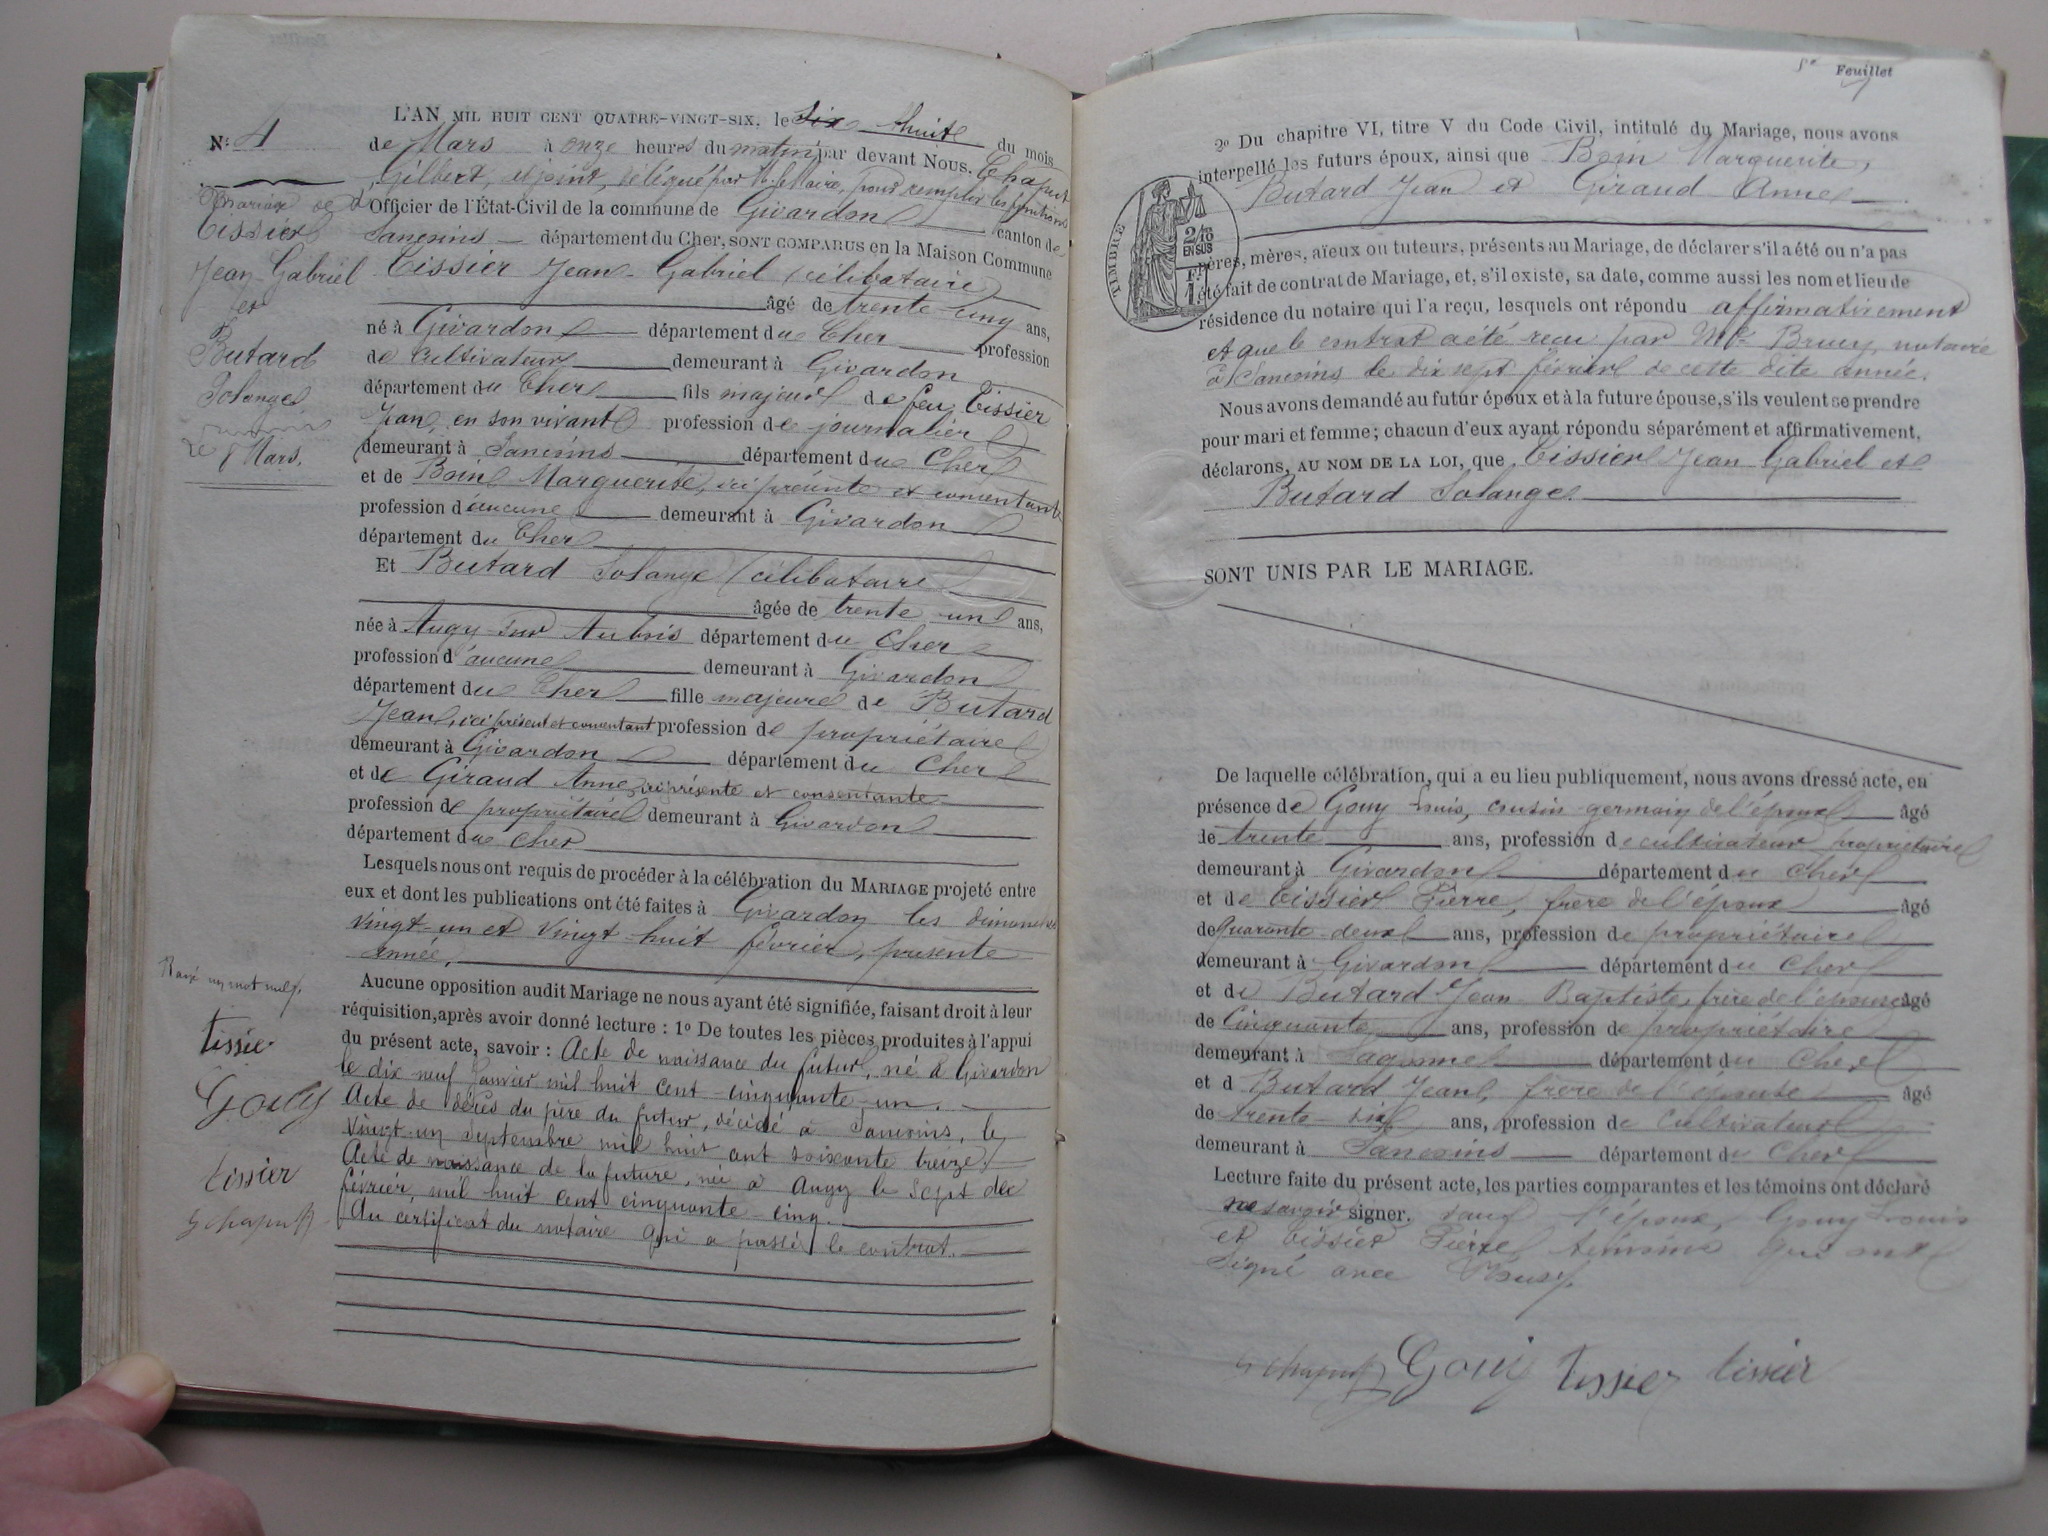 L'AN MIL HUIT CENT QUATRE-VINGT-SIX, le Six huit du mois
N: 4
de Mars à onze heures du matin par devant Nous, Chaput
Gilbert, adjoint, délégué par M. le Maire, pour remplir les fonctions
Mariage de
Officier de l'État-Civil de la commune de Givardon canton de
Tissier
Sancoins département du Cher, SONT COMPARUS en la Maison Commune
Jean-Gabriel
Tissier Jean-Gabriel (célibataire)
et
âgé de trente-cinq ans,
né à Givardon département du Cher profession
Butard
de cultivateur demeurant à Givardon
Solange
département du Cher fils majeur de feu Tissier
Jean, en son vivant profession de journalier
8 Mars.
demeurant à Sancoins département du Cher
et de Boin Marguerite, ici présente et consentante
profession d'aucune demeurant à Givardon
département du Cher
Et Butard Solange (célibataire)
âgée de trente-un ans,
née à Augy-sur-Aubois département du Cher
profession d'aucune demeurant à Givardon
département du Cher fille majeure de Butard
Jean, ici présent et consentant profession de propriétaire
demeurant à Givardon département du Cher
et de Giraud Anne, ici présente et consentante
profession de propriétaire demeurant à Givardon
département du Cher
Lesquels nous ont requis de procéder à la célébration du MARIAGE projeté entre
eux et dont les publications ont été faites à Givardon les dimanches
vingt-un et vingt-huit février, présente
année.
Rayé un mot nul.
Aucune opposition audit Mariage ne nous ayant été signifiée, faisant droit à leur
réquisition, après avoir donné lecture : 1º De toutes les pièces produites à l'appui
du présent acte, savoir : Acte de naissance du futur, né à Givardon
tissier
le dix neuf Janvier mil huit cent cinquante-un.
Gouy
Acte de décès du père du futur, décédé à Sancoins, le
vingt-un septembre mil huit cent soixante treize.
Acte de naissance de la future, née à Augy le sept de
tissier
février, mil huit cent cinquante-cinq.
G Chaput
Du certificat du notaire qui a passé le contrat.
5e Feuillet
2º Du chapitre VI, titre V du Code Civil, intitulé du Mariage, nous avons
interpellé les futurs époux, ainsi que Boin Marguerite,
Butard Jean et Giraud Anne
TIMBRE
2/10
EN SUS
pères, mères, aïeux ou tuteurs, présents au Mariage, de déclarer s'il a été ou n'a pas
été fait de contrat de Mariage, et, s'il existe, sa date, comme aussi les nom et lieu de
résidence du notaire qui l'a reçu, lesquels ont répondu affirmativement
et que le contrat a été reçu par Me Bruuy, notaire
à Sancoins le dix sept février de cette dite année.
Nous avons demandé au futur époux et à la future épouse, s'ils veulent se prendre
pour mari et femme; chacun d'eux ayant répondu séparément et affirmativement,
déclarons, AU NOM DE LA LOI, que Tissier Jean Gabriel et
Butard Solange.
SONT UNIS PAR LE MARIAGE.
De laquelle célébration, qui a eu lieu publiquement, nous avons dressé acte, en
présence de Gouy Louis, cousin germain de l'époux âgé
de trente ans, profession de cultivateur propriétaire
demeurant à Givardon département du Cher
et de Tissier Pierre, frère de l'époux âgé
de quarante-deux ans, profession de propriétaire
demeurant à Givardon département du Cher
et de Butard Jean Baptiste, frère de l'épouse âgé
de Cinquante ans, profession de propriétaire
demeurant à Sagonne département du Cher
et d Butard Jean, frère de l'épouse âgé
de trente-six ans, profession de cultivateur
demeurant à Sancoins département du Cher
Lecture faite du présent acte, les parties comparantes et les témoins ont déclaré
ne savoir signer. sauf l'époux, Gouy Louis
et Tissier Pierre, témoins qui ont
signé avec Nous.
G Chaput Gouy tissier tissier